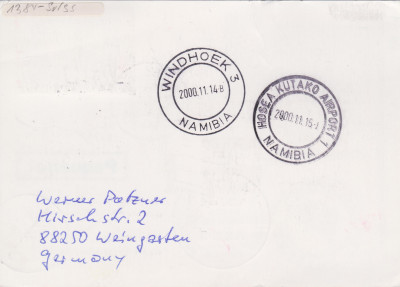 WINDHOEK 3
2000.11.14-8
NAMIBIA
HOSEA KUTAKO AIRPORT 1
NAMIBIA
Werner Patzner
Hirschstr. 2
88250 Weingarten
Germany